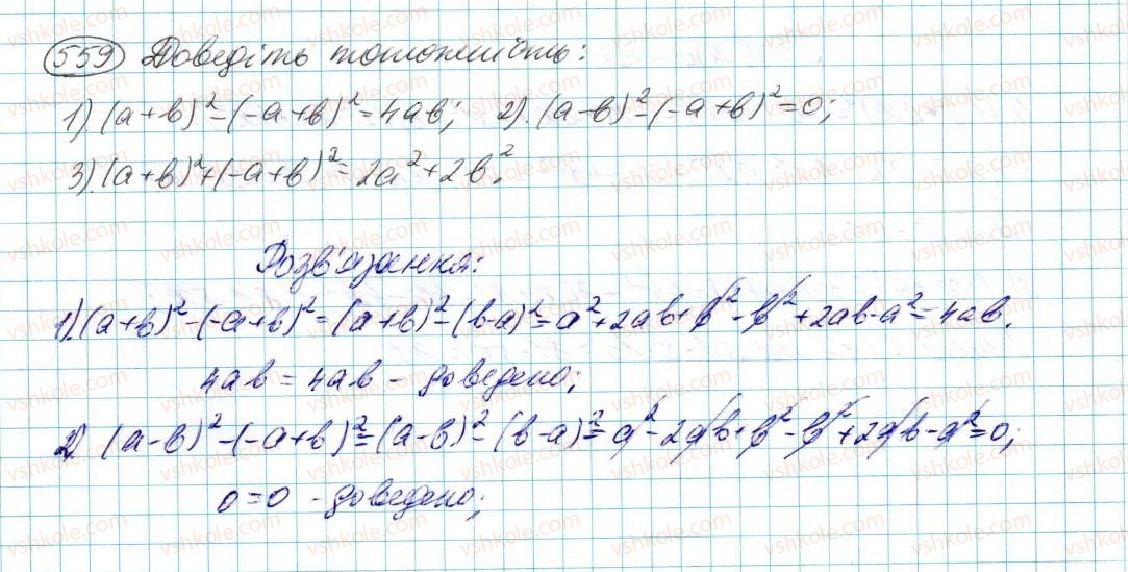 559 Доведіть тотожність:
1). (a+b)² - (-a+b)² = 4ab; 2). (a-b)² - (-a+b)² = 0;
3) (a+b)² + (-a+b)² = 2a² + 2b².
Розв'язання:
1). (a+b)² - (-a+b)² = (a+b)² - (b-a)² = a² + 2ab + b² - b² + 2ab - a² = 4ab.
4ab = 4ab - доведено;
2) (a-b)² - (-a+b)² = (a-b)² - (b-a)² = a² - 2ab + b² - b² + 2ab - a² = 0;
0 = 0 - доведено;